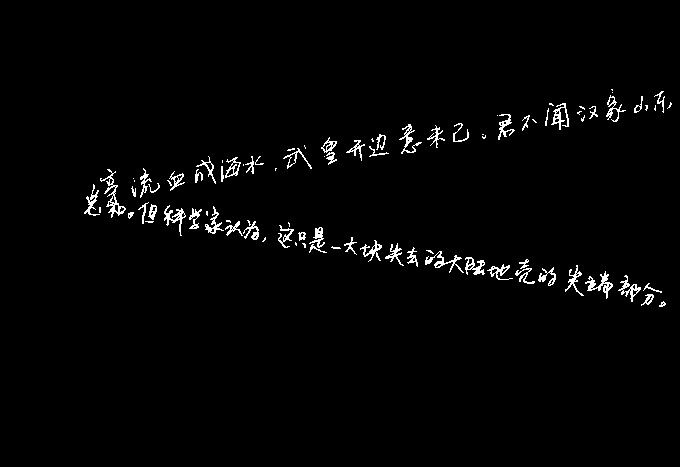 亭流血成海水,武皇开边意未已。君不闻汉家山东
总和。但科学家认为,这只是一大块失去的大陆地壳的尖端部分。